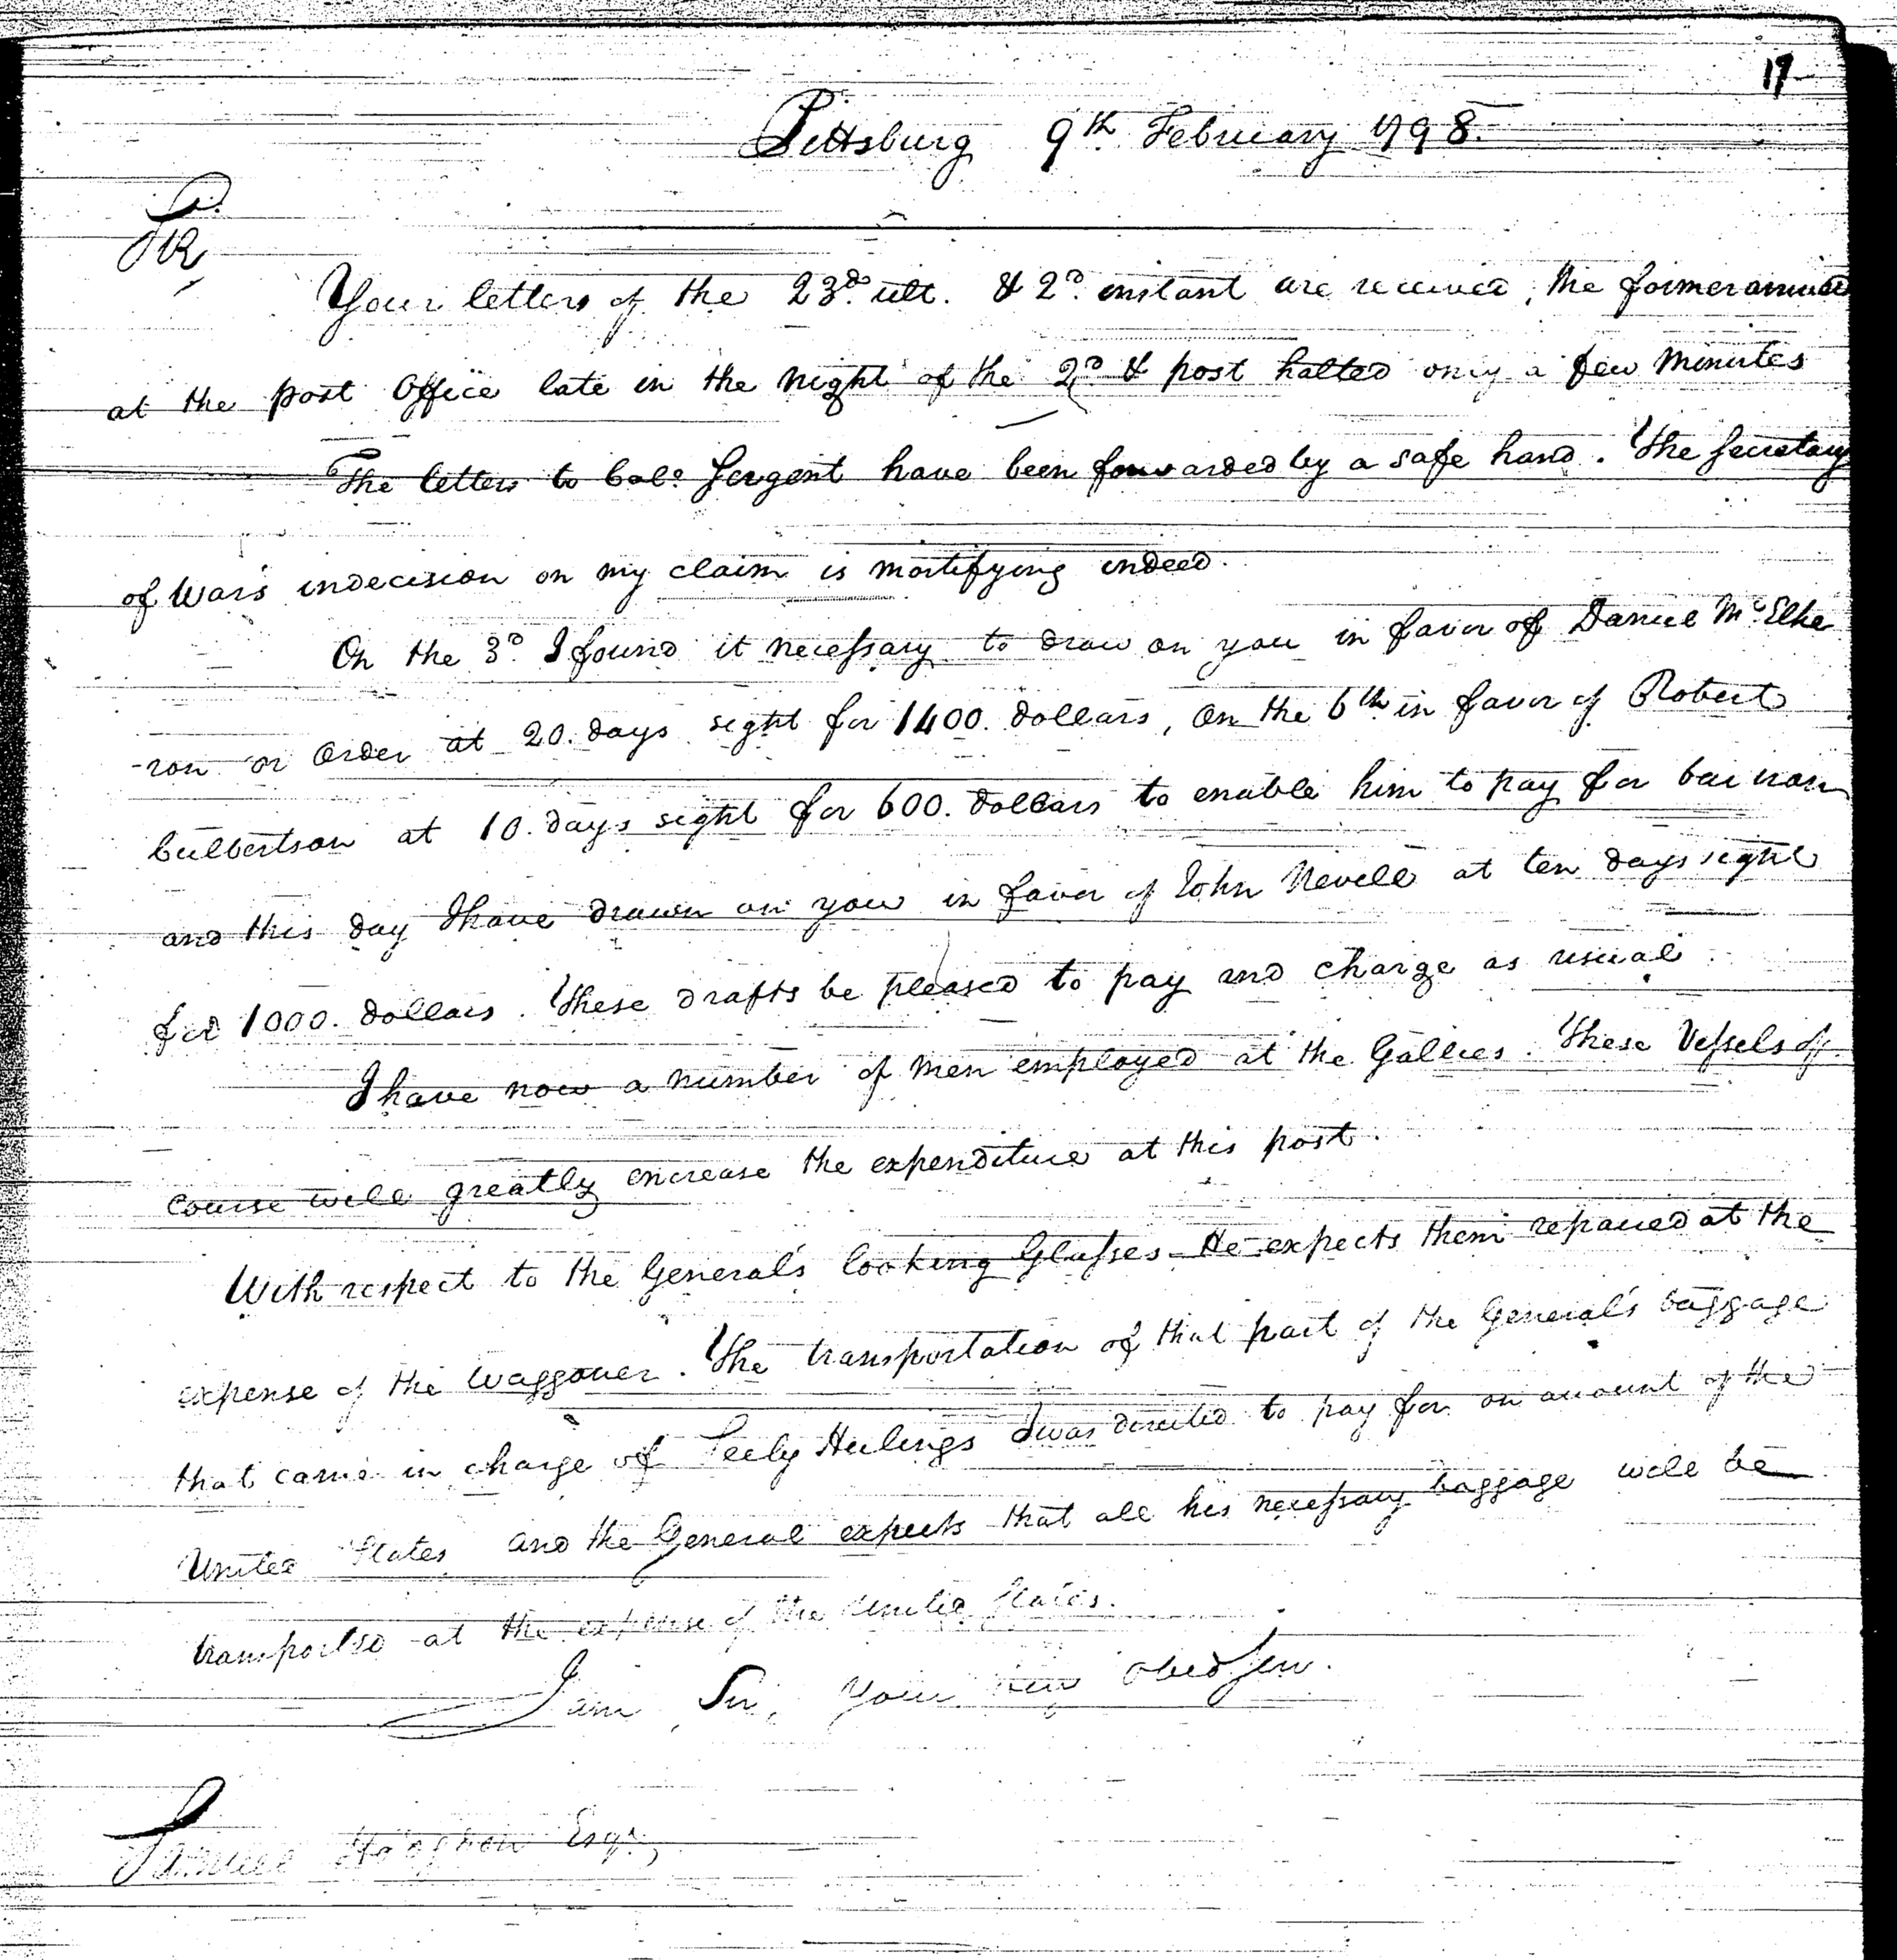 17
Pittsburg 9th February 1798.
SIR
Your letters of the 23d. ult. & 2d. instant are received, the former arrived
at the post Office late in the night of the 2d & post halted only a few minutes
The letters to Colo. Sergent have been forwarded by a safe hand. The Secretary
of War's indecision on my claim is mortifying indeed.
On the 3d. I found it necessary to draw on you in favor of Daniel McElhe
-ron or Order at 20. days sight for 1400. dollars, On the 6th in favor of Robert
Culbertson at 10. days sight for 600. dollars to enable him to pay for bar iron
and this day I have drawn on you in favor of John Nevill at ten days sight
for 1000. dollars. These drafts be pleased to pay and charge as usual.
I have now a number of men employed at the Gallies. These Vessels of
course will greatly encrease the expenditure at this post.
With respect to the General's looking Glasses He expects them repaired at the
expense of the Waggoner. The transportation of that part of the General's baggage
that came in charge of Seely Hulings I was directed to pay for on account of the
United States and the General expects that all his necessary baggage will be
transported at the expense of the United States.
I am Sir, your obed Serv.
Samuel Hodgdon Esqr,